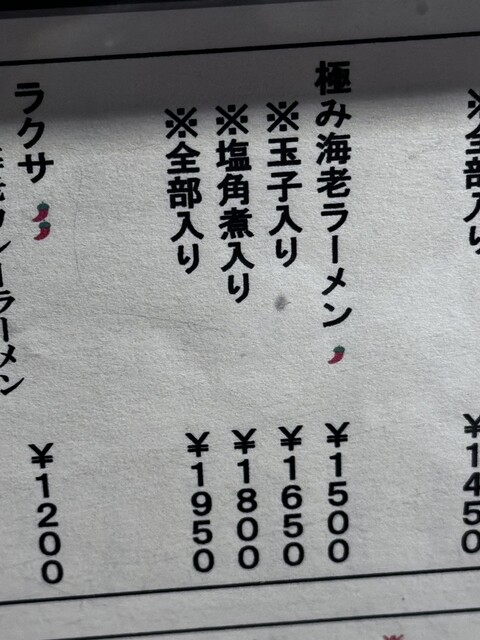 ※全部入り ¥1450
極み海老ラーメン 🌶 ¥1500
※玉子入り ¥1650
※塩角煮入り ¥1800
※全部入り ¥1950
ラクサ 🌶🌶 ¥1200
カレーラーメン